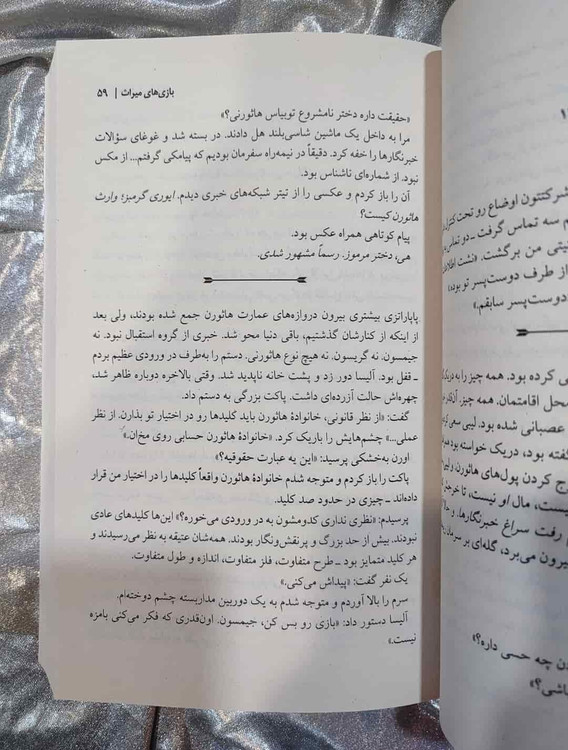 بازی‌های میراث | ۵۹
«حقیقت داره دختر نامشروع توبیاس هاثورنی؟»
مرا به داخل یک ماشین شاسی‌بلند هل دادند. در بسته شد و غوغای سؤالات
خبرنگارها را خفه کرد. دقیقاً در نیمه‌راه سفرمان بودیم که پیامکی گرفتم... از مکس
نبود. از شماره‌ای ناشناس بود.
آن را باز کردم و عکسی را از تیتر شبکه‌های خبری دیدم. ایوری گرمبز؛ وارث
هاثورن کیست؟
پیام کوتاهی همراه عکس بود.
هی، دختر مرموز. رسماً مشهور شدی.
پاپاراتزی بیشتری بیرون دروازه‌های عمارت هاثورن جمع شده بودند، ولی بعد
از اینکه از کنارشان گذشتیم، باقی دنیا محو شد. خبری از گروه استقبال نبود. نه
جیمسون. نه گریسون. نه هیچ نوع هاثورنی. دستم را به‌طرف در ورودی عظیم بردم
ـ قفل بود. آلیسا دور زد و پشت خانه ناپدید شد. وقتی بالاخره دوباره ظاهر شد،
چهره‌اش حالت آزرده‌ای داشت. پاکت بزرگی به دستم داد.
گفت: «از نظر قانونی، خانوادهٔ هاثورن باید کلیدها رو در اختیار تو بذارن. از نظر
عملی...» چشم‌هایش را باریک کرد. «خانوادهٔ هاثورن حسابی روی مخ‌ان.»
اورن به‌خشکی پرسید: «این یه عبارت حقوقیه؟»
پاکت را باز کردم و متوجه شدم خانوادهٔ هاثورن واقعاً کلیدها را در اختیار من قرار
داده‌اند ـ چیزی در حدود صد کلید.
پرسیدم: «نظری نداری کدومشون به در ورودی می‌خوره؟» این‌ها کلیدهای عادی
نبودند. بیش از حد بزرگ و پرنقش‌ونگار بودند. همه‌شان عتیقه به نظر می‌رسیدند و
هر کلید متمایز بود ـ طرح متفاوت، فلز متفاوت، اندازه و طول متفاوت.
یک نفر گفت: «پیداش می‌کنی.»
سرم را بالا آوردم و متوجه شدم به یک دوربین مداربسته چشم دوخته‌ام.
آلیسا دستور داد: «بازی رو بس کن، جیمسون. اون‌قدری که فکر می‌کنی بامزه
نیست.»
شرکتتون اوضاع رو تحت کنترل
م سه تماس گرفت ـ دو تماس
نیتی من برگشت. «نشت
از طرف دوست‌پسر تو بود»
دوست‌پسر سابقم.»
ی کرده بود. همه چیز را به دریک
محل اقامتمان. همه چیز.
عصبانی شده بود. لیبی سعی
گفته بود، دریک خواسته بود
ج کردن پول‌های هاثورن
نیست، مال او نیست، تا
م رفت سراغ خبرنگارها. و
بیرون می‌برد، گله‌ای بر سرمان
دن چه حسی داره؟»
باشی؟»